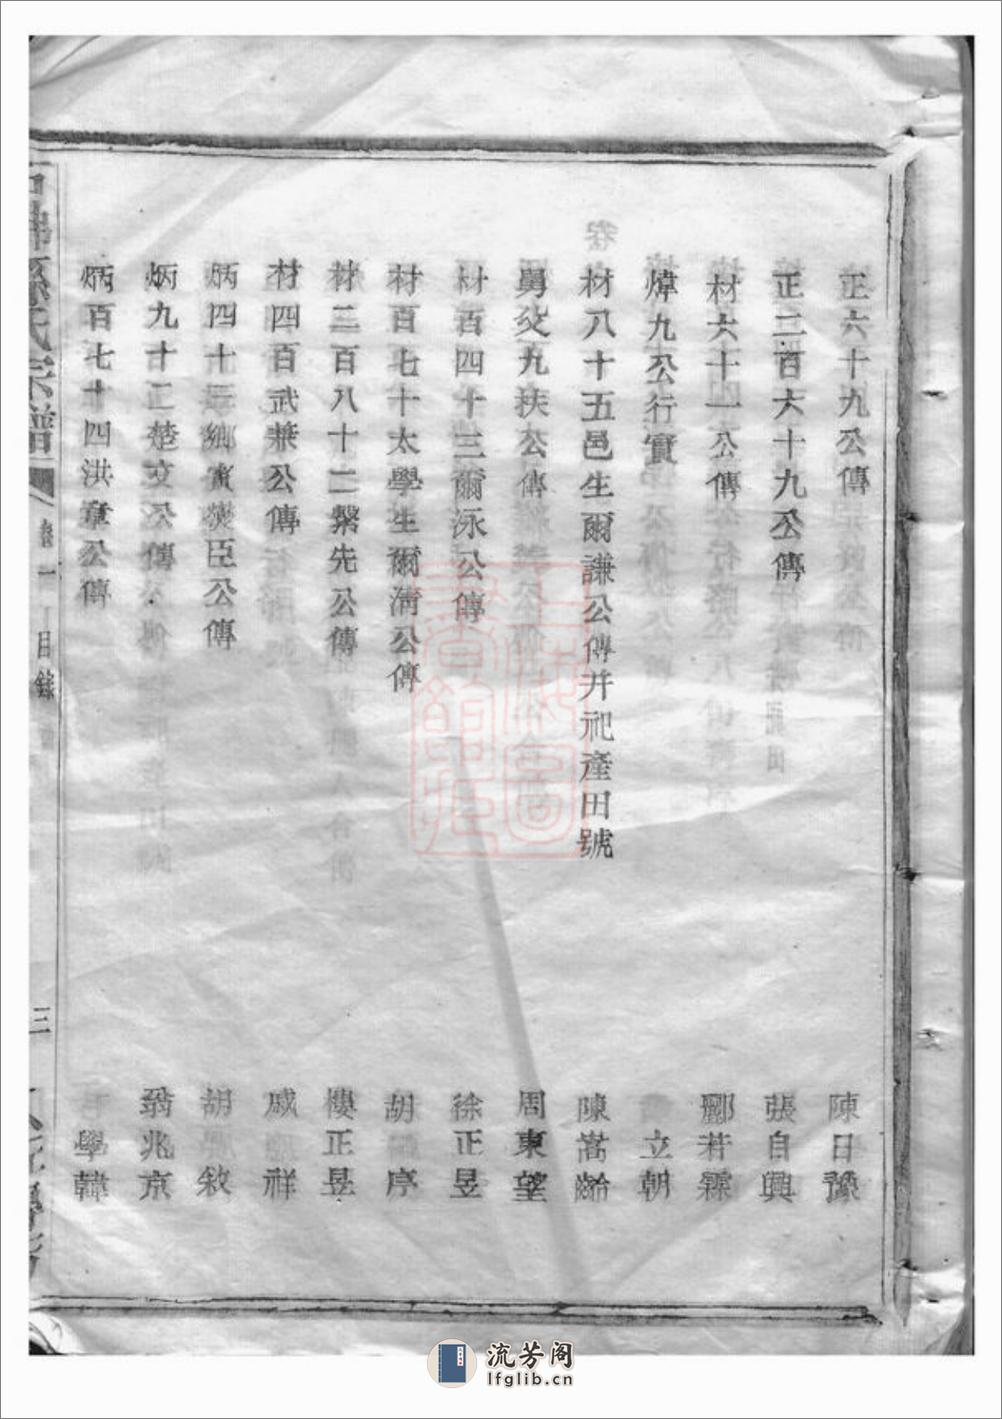 正六十九公傳 陳日豫
正二百六十九公傳 張自興
材六十一公傳 酈若霖
煒九公行實 立朝
材八十五邑生爾謙公傳并祀產田號 陳嵩齡
舅父九扶公傳 周東望
材百四十三爾泳公傳 徐正昱
材百七十太學生爾淸公傳 胡序
材二百八十二繫先公傳 樓正昱
材四百武兼公傳 戚祥
炳四十三鄉賓燮臣公傳 胡敘
炳九十二楚文公傳 翁兆京
炳百七十四洪章公傳 學韓
孫氏宗譜 卷一 目錄 三
流芳阁
lfglib.cn